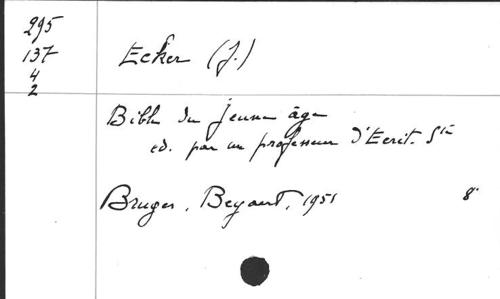 295
137
4
2
Ecker (J.)
Bible du jeune âge
ed. par un professeur d'Ecrit. Ste
Bruges, Beyaert, 1951 8°